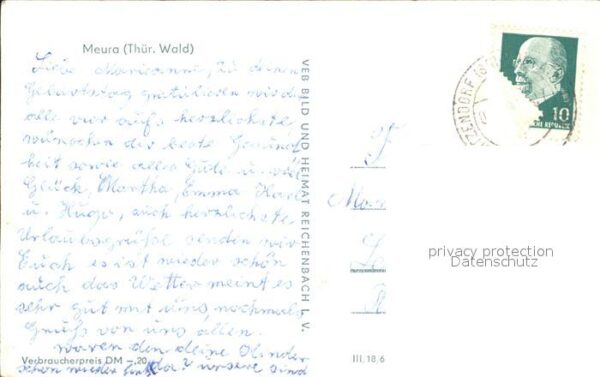 Meura (Thür. Wald)
Liebe Marieanne, zu deinem
Geburtstag gratulieren wir dir
alle vier aufs herzlichste
wünschen dir beste Gesund
heit sowie alles Gute u. viel
Glück, Martha, Emma Karl
u. Hugo, auch herzlichste
Urlaubsgrüße senden wir
Euch es ist wieder schön
auch das Wetter meint es
sehr gut mit uns, nochmals
Gruß von uns allen.
waren den deine Kinder
schon wieder da? unsere sind
Verbraucherpreis DM -,20
VEB BILD UND HEIMAT REICHENBACH I. V.
III.18/6
10
privacy protection
Datenschutz